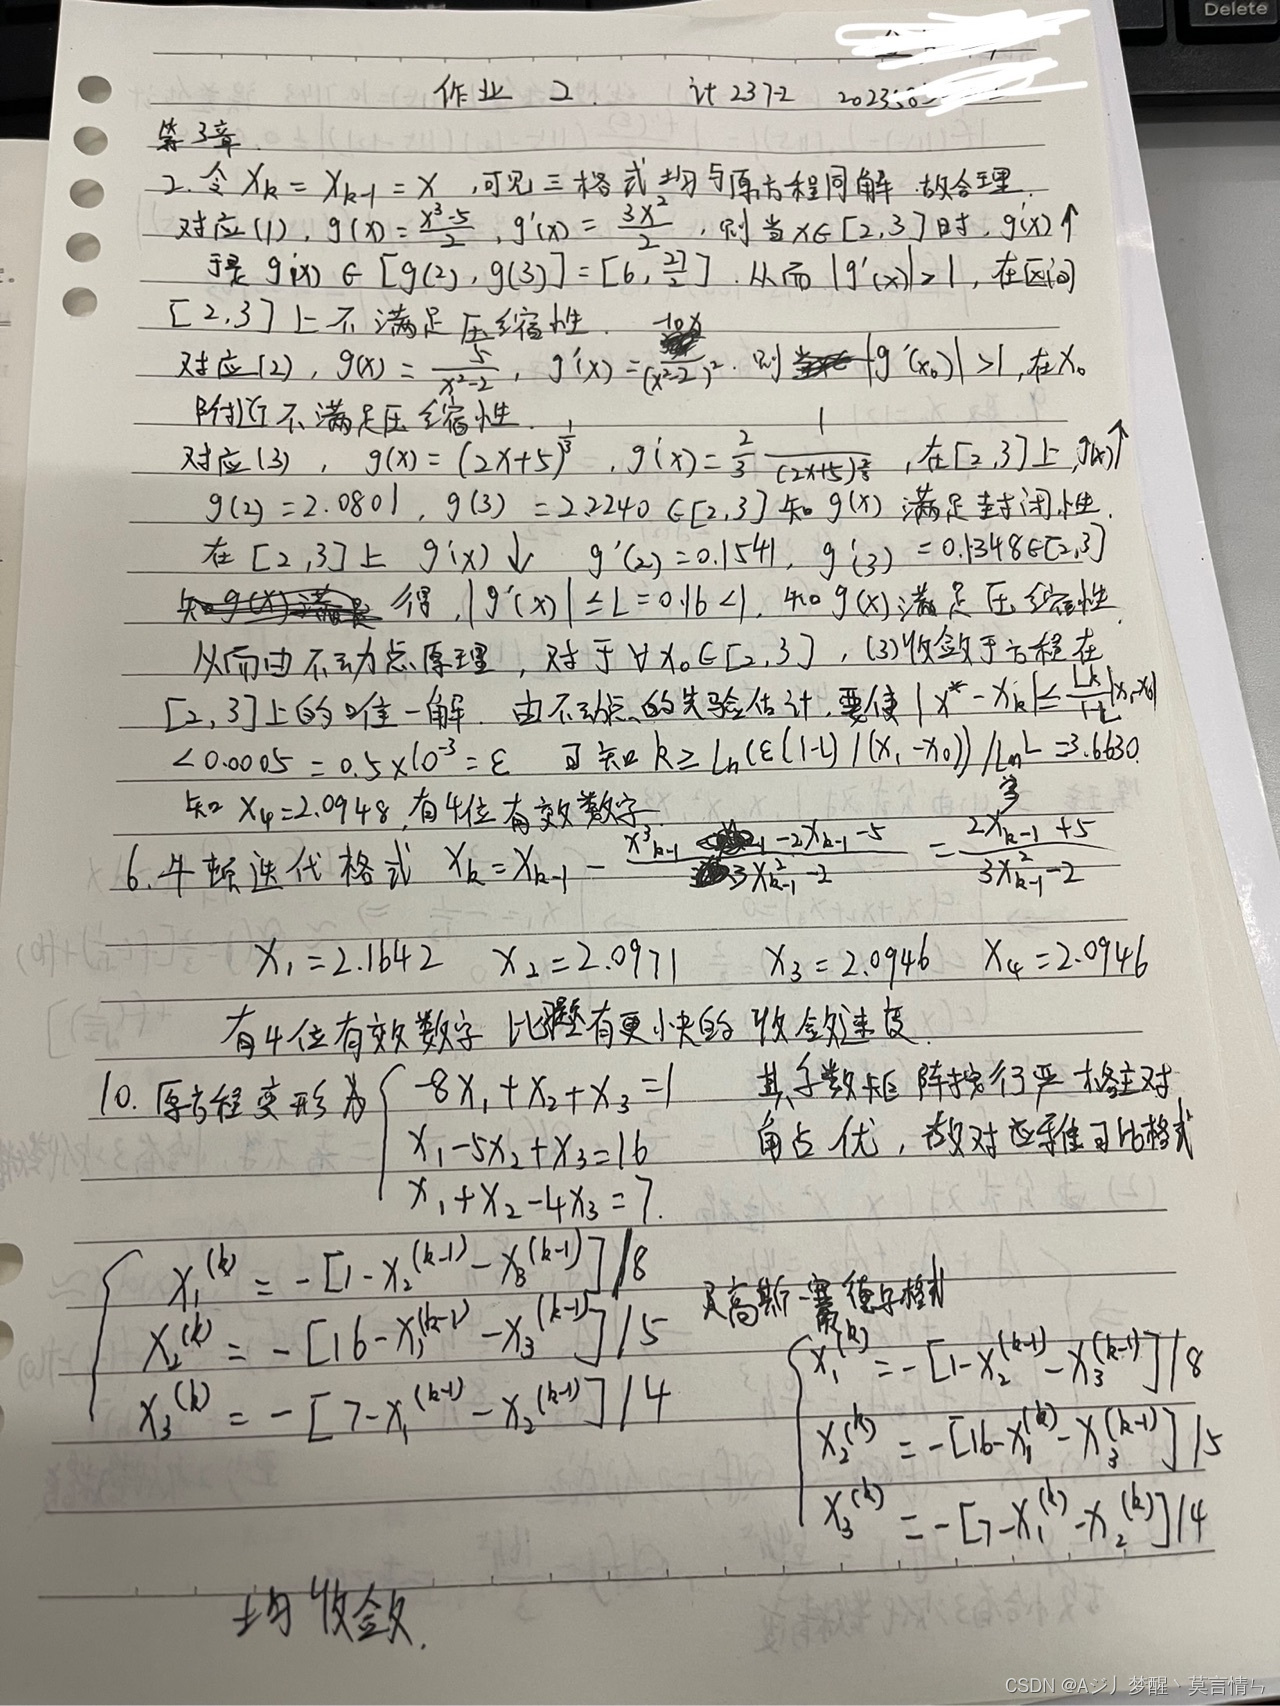 Delete
作业 2. 计2372 2023
第3章.
2. 令 Xk = Xk-1 = X ,可见三格式均与原方程同解.故合理.
对应(1), g(x) = (x³-5)/2 , g'(x) = 3x²/2 , 则当x∈[2,3]时, g'(x)↑
于是 g'(x) ∈ [g(2), g(3)] = [6, 27/2]. 从而 |g'(x)|>1, 在区间
[2,3]上不满足压缩性.
对应(2), g(x) = 5/(x²-2) , g'(x) = -10x/(x²-2)². 则 |g'(x₀)|>1,在X₀
附近不满足压缩性.
对应(3), g(x) = (2x+5)^(1/3) , g'(x) = 2/3 1/(2x+5)^(2/3) , 在[2,3]上,g(x)↑
g(2) = 2.0801, g(3) = 2.2240 ∈[2,3] 知 g(x) 满足封闭性.
在[2,3]上 g'(x)↓ g'(2) = 0.1541, g'(3) = 0.1348∈[2,3]
得, |g'(x)| ≤ L = 0.16 < 1, 知 g(x) 满足压缩性
从而由不动点原理, 对于 ∀x₀∈[2,3], (3)收敛于方程在
[2,3]上的唯一解. 由不动点的先验估计, 要使 |x*-xk| ≤ L^k/(1-L) |x₁-x₀|
<0.0005 = 0.5×10⁻³ = ε 可知 k ≥ Ln(ε(1-L)/(x₁-x₀))/LnL = 3.6630.
知 x₄=2.0948,有4位有效数字
6. 牛顿迭代格式 Xk = Xk-1 - (x³k-1 -2Xk-1-5)/(3X²k-1-2) = (2X³k-1+5)/(3X²k-1-2)
X₁=2.1642 X₂=2.0971 X₃=2.0946 X₄=2.0946
有4位有效数字 比 有更快的收敛速度.
10. 原方程变形为 { -8X₁+X₂+X₃=1 其系数矩阵按行严格主对
X₁-5X₂+X₃=16 角占优, 故对应雅可比格式
X₁+X₂-4X₃=7.
X₁^(k) = -[1-X₂^(k-1)-X₃^(k-1)]/8
X₂^(k) = -[16-X₁^(k-1)-X₃^(k-1)]/5
X₃^(k) = -[7-X₁^(k-1)-X₂^(k-1)]/4
及高斯-赛德尔格式
X₁^(k) = -[1-X₂^(k-1)-X₃^(k-1)]/8
X₂^(k) = -[16-X₁^(k)-X₃^(k-1)]/5
X₃^(k) = -[7-X₁^(k)-X₂^(k)]/4
均收敛.
CSDN @Aジ丿梦醒丶莫言情ㄣ